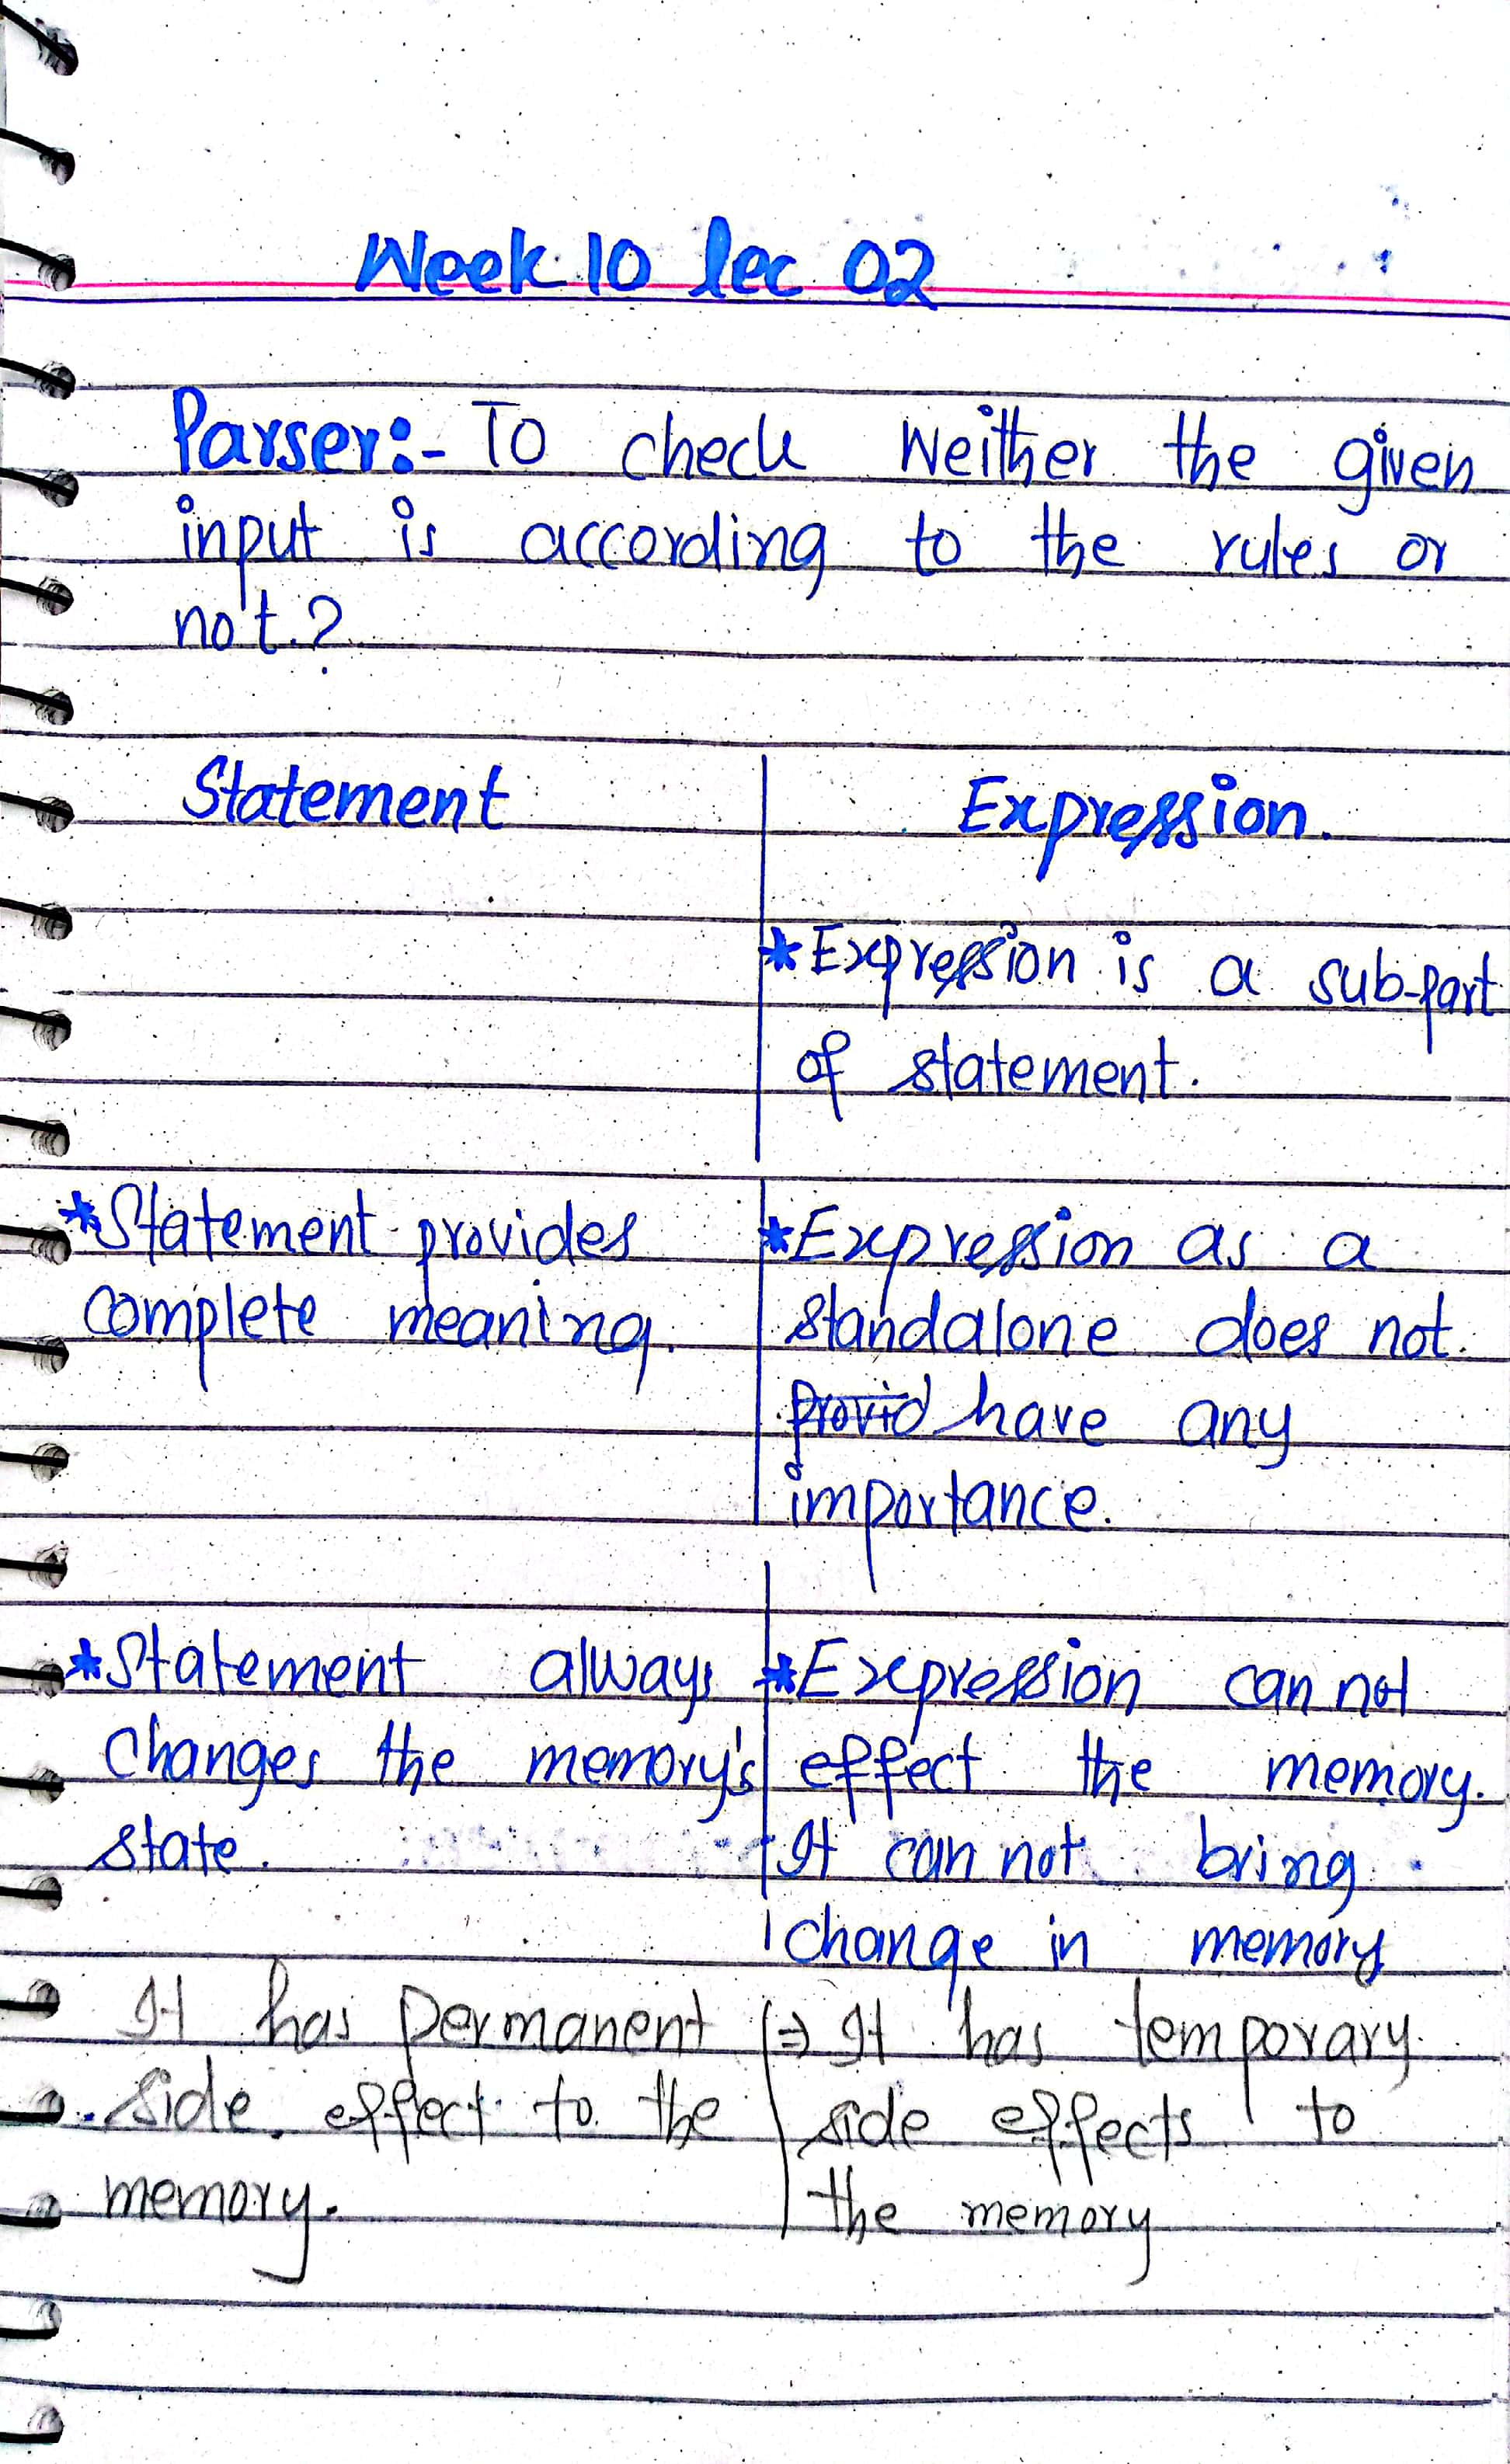 Week 10 lec 02
Parser:- To check Weither the given
input is according to the rules or
not.?
Statement
Expression.
*Expression is a sub-part
of statement.
*Statement provides
complete meaning.
*Expression as a
standalone does not
provid have any
importance.
*Statement always
changes the memory's
state.
*Expression can not
effect the memory.
It can not bring
change in memory
It has Permanent
side effect to the
memory.
⇒ It has temporary
side effects to
the memory